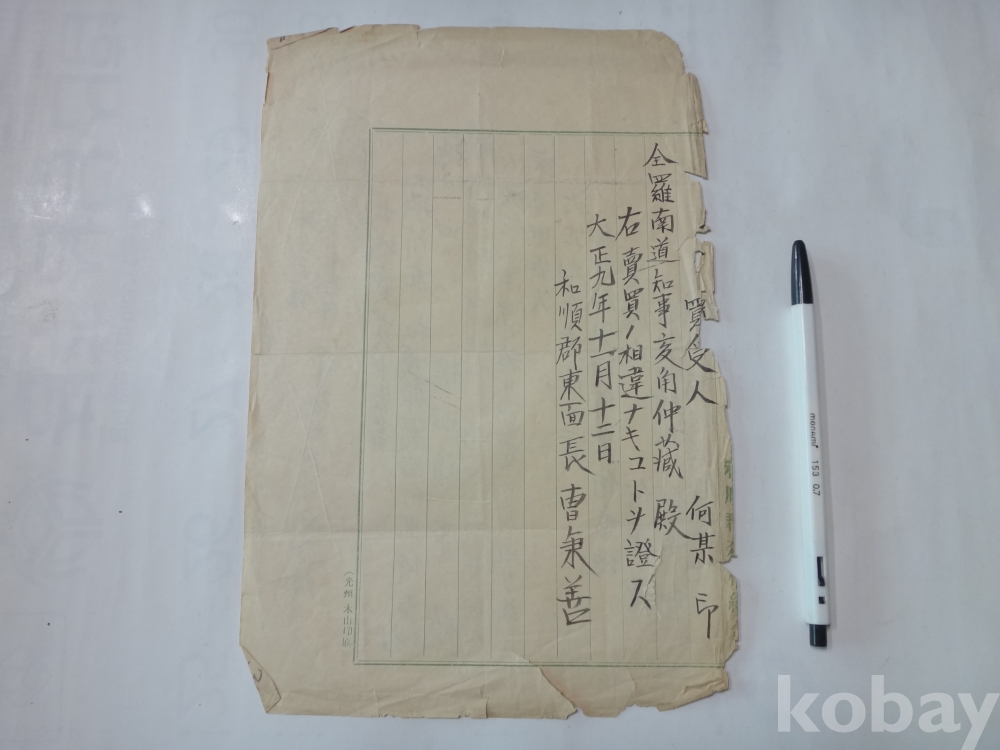 買受人 何某 印
全羅南道知事亥角仲藏 殿
右賣買ノ相違ナキコトヲ證ス
大正九年十一月十二日
和順郡東面長 曺秉善
(光州 木山印刷)
monami 153 0.7
kobay